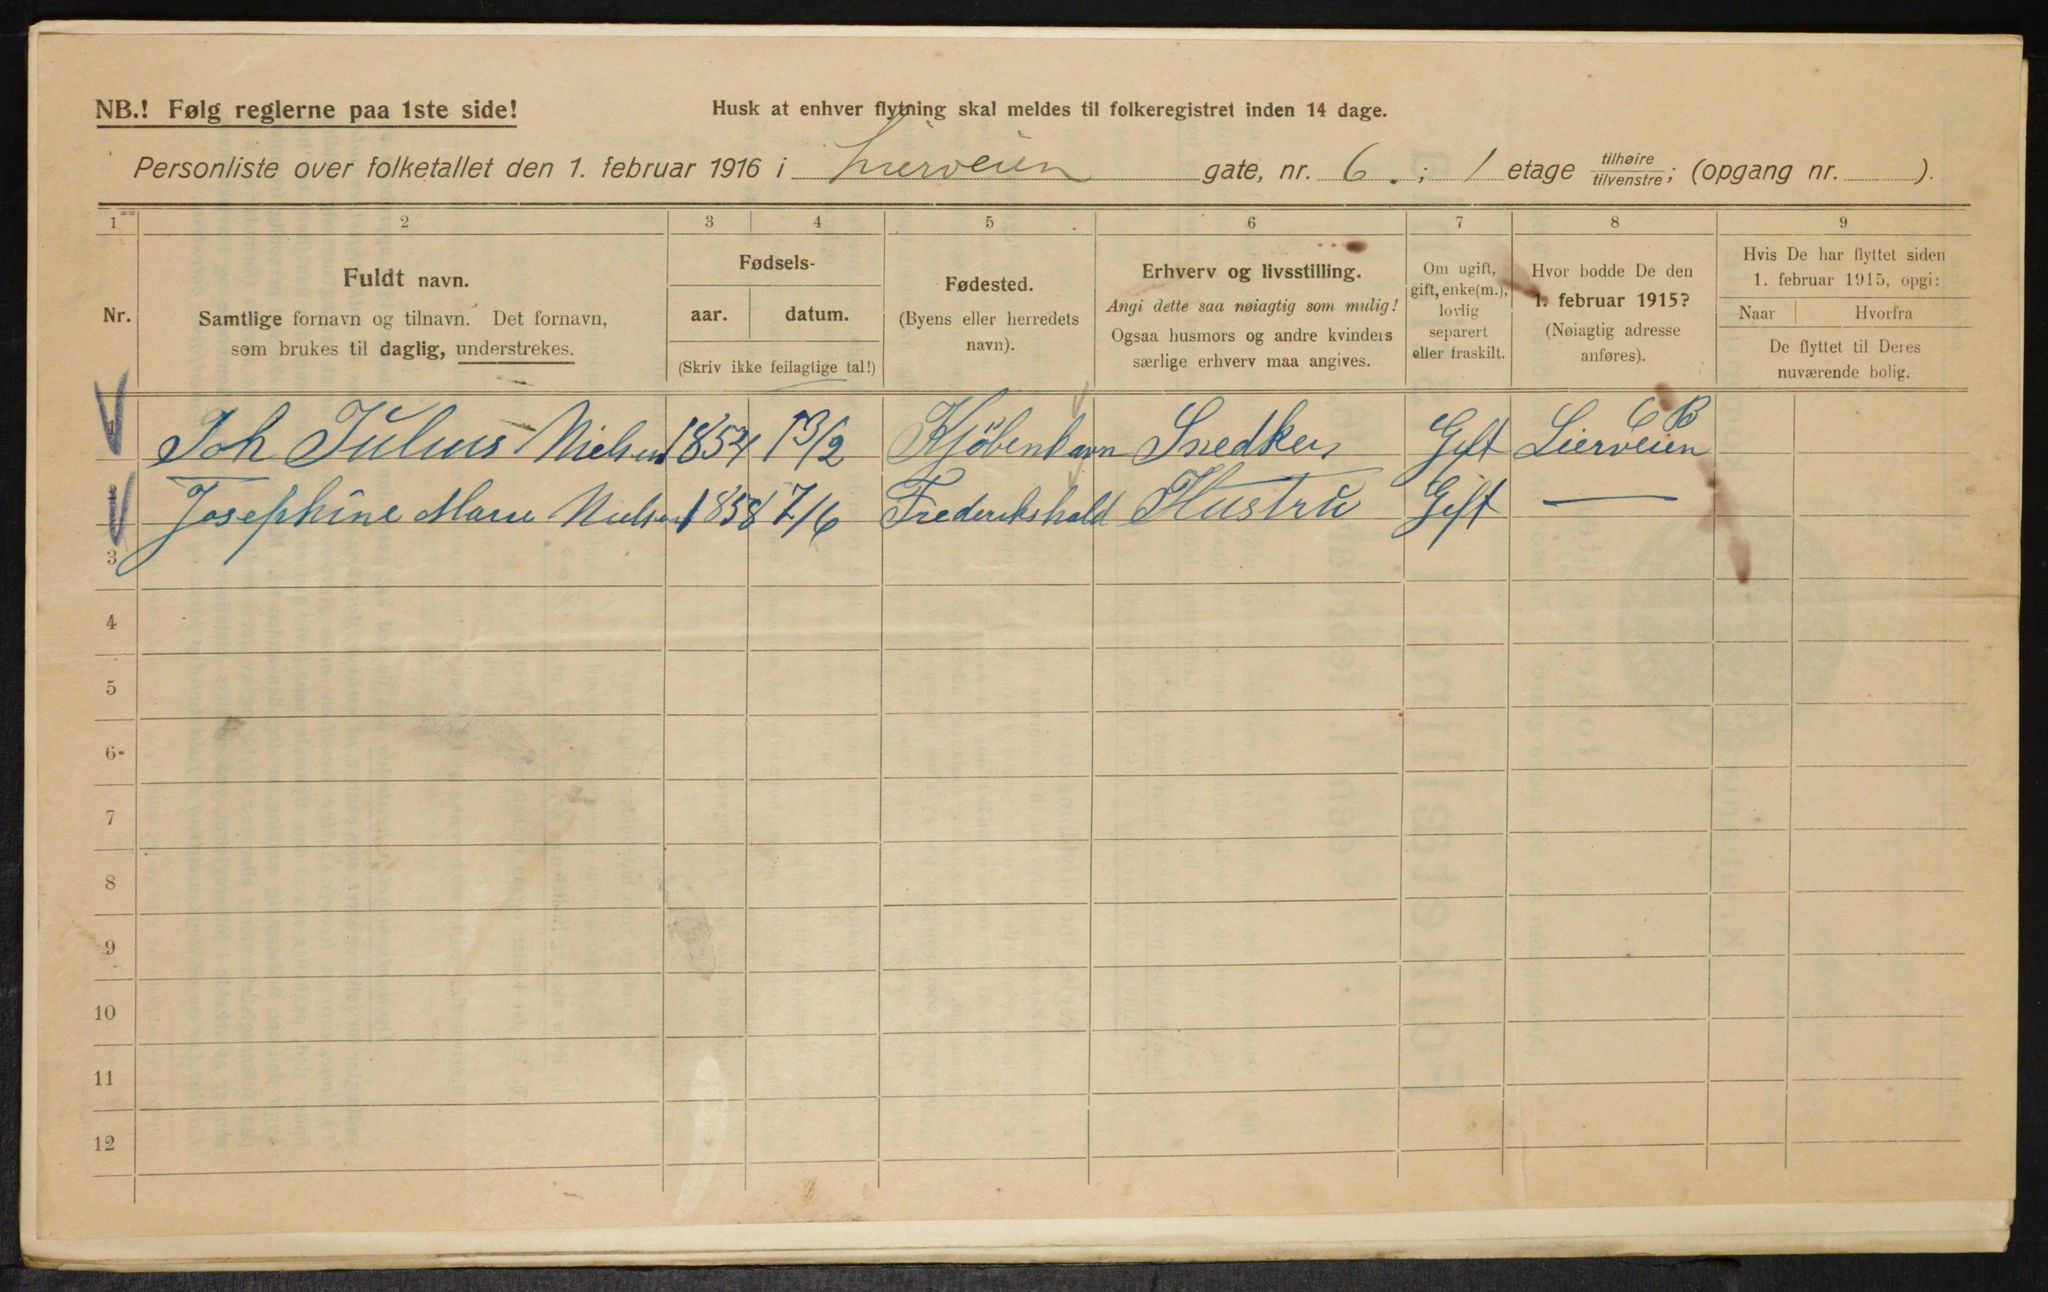 NB.! Følg reglerne paa 1ste side!
Husk at enhver flytning skal meldes til folkeregistret inden 14 dage.
Personliste over folketallet den 1. februar 1916 i Lierveien gate, nr. 6. ; 1 etage tilhøire/tilvenstre; (opgang nr. ).
1 2 3 4 5 6 7 8 9
Nr.
Fuldt navn.
Samtlige fornavn og tilnavn. Det fornavn,
som brukes til daglig, understrekes.
Fødsels-
aar. datum.
(Skriv ikke feilagtige tal!)
Fødested.
(Byens eller herredets
navn).
Erhverv og livsstilling.
Angi dette saa nøiagtig som mulig!
Ogsaa husmors og andre kvinders
særlige erhverv maa angives.
Om ugift,
gift, enke(m.),
lovlig
separert
eller fraskilt.
Hvor bodde De den
1. februar 1915?
(Nøiagtig adresse
anføres).
Hvis De har flyttet siden
1. februar 1915, opgi:
Naar Hvorfra
De flyttet til Deres
nuværende bolig.
1 Joh Julius Nielsen 1854 13/2 Kjøbenhavn Snedker Gift Lierveien 6 B
Josephine Marie Nielsen 1858 7/6 Frederikshald Hustru Gift —
3
4
5
6
7
8
9
10
11
12